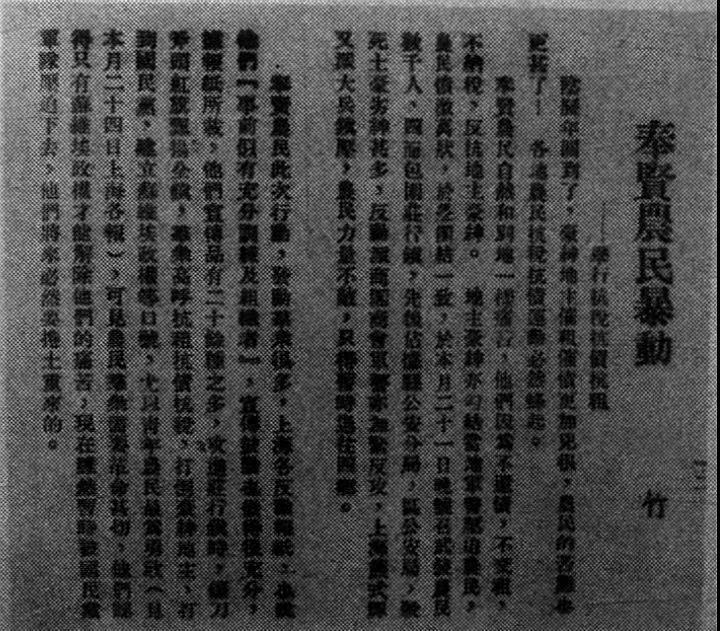 奉賢農民暴動 竹
——舉行抗稅抗債抗租
陰曆年關到了，豪紳地主催租催債更加兇惡，農民的苦難也
更甚了！各地農民抗稅抗債運動必然蜂起。
奉賢農民自然和別地一樣痛苦，他們因為不還債，不完租，
不納稅，反抗地主豪紳。地主豪紳亦勾結當地軍警壓迫農民，
農民憤激萬狀，於是團結一致，於本月二十一日晚間召武裝農民
數千人，四面包圍莊行鎮，先後佔據縣公安分局，區公安局，殺
死土豪劣紳甚多，反動派商團商會軍警亦無力反攻，上海
又調大兵鎮壓，農民力量不敵，只得暫時退往四鄉。
奉賢農民此次行動，發動羣眾很多，上海各反動報紙，亦說
他們『事前似有充分訓練及組織者』，宣傳鼓動也做得很充分，
據報紙所載，他們宣傳品有二十餘種之多，攻進莊行鎮時，鐮刀
斧頭紅旗飄揚全鎮，羣眾高呼抗租抗債抗稅，打倒豪紳地主，打
到國民黨，建立蘇維埃政權等口號，尤以青年農民最為勇敢（見
本月二十四日上海各報），可見農民羣眾需要革命甚切，他們認
得只有蘇維埃政權才能解除他們的痛苦，現在雖然暫時被國民黨
軍隊壓迫下去，他們將來必然要捲土重來的。